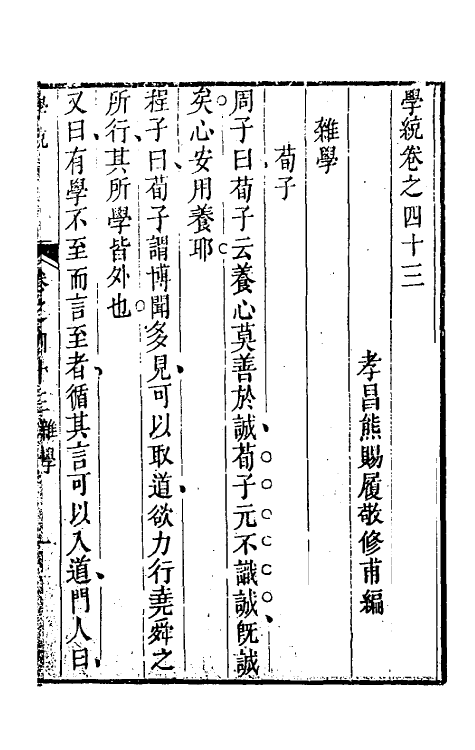 學統卷之四十三
孝昌熊賜履敬修甫編
雜學
荀子
周子曰荀子云養心莫善於誠荀子元不識誠旣誠
矣心安用養耶
程子曰荀子謂博聞多見可以取道欲力行堯舜之
所行其所學皆外也
又曰有學不至而言至者循其言可以入道門人曰
學統
卷之四十三
雜學
一